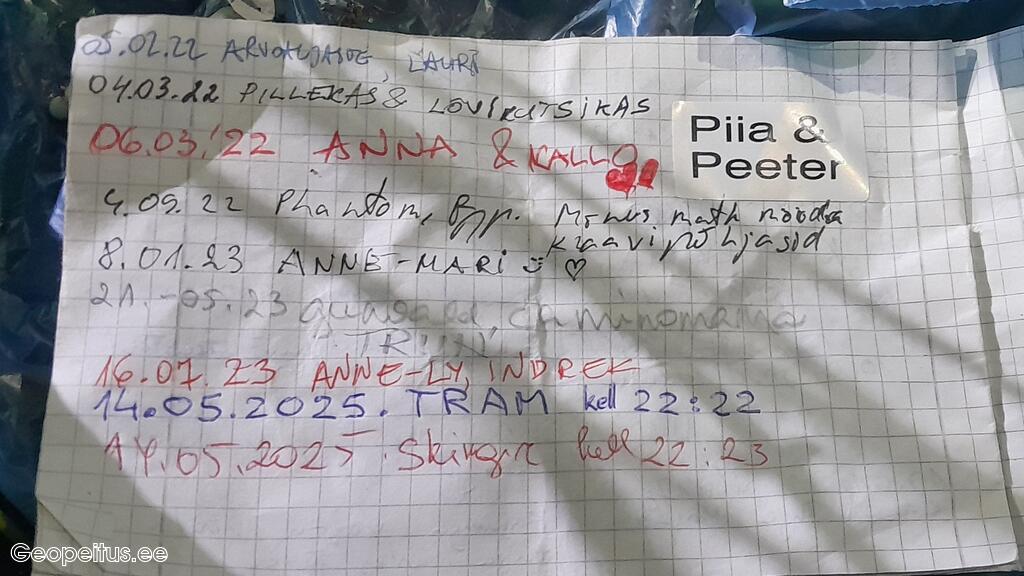 05.02.22 LAURI
04.03.22 PILLEKAS & LOVIKUTSIKAS
06.03.'22 ANNA & KALLO
Piia &
Peeter
4.09.22 Phantom, Minus math mööda
kraavipõhjasid
8.01.23 ANNE-MARI
21.-05.23 caminomanna
TRIIN
16.07.23 ANNE-LY, INDREK
14.05.2025. TRAM kell 22:22
14.05.2025. kell 22:23
Geopeitus.ee